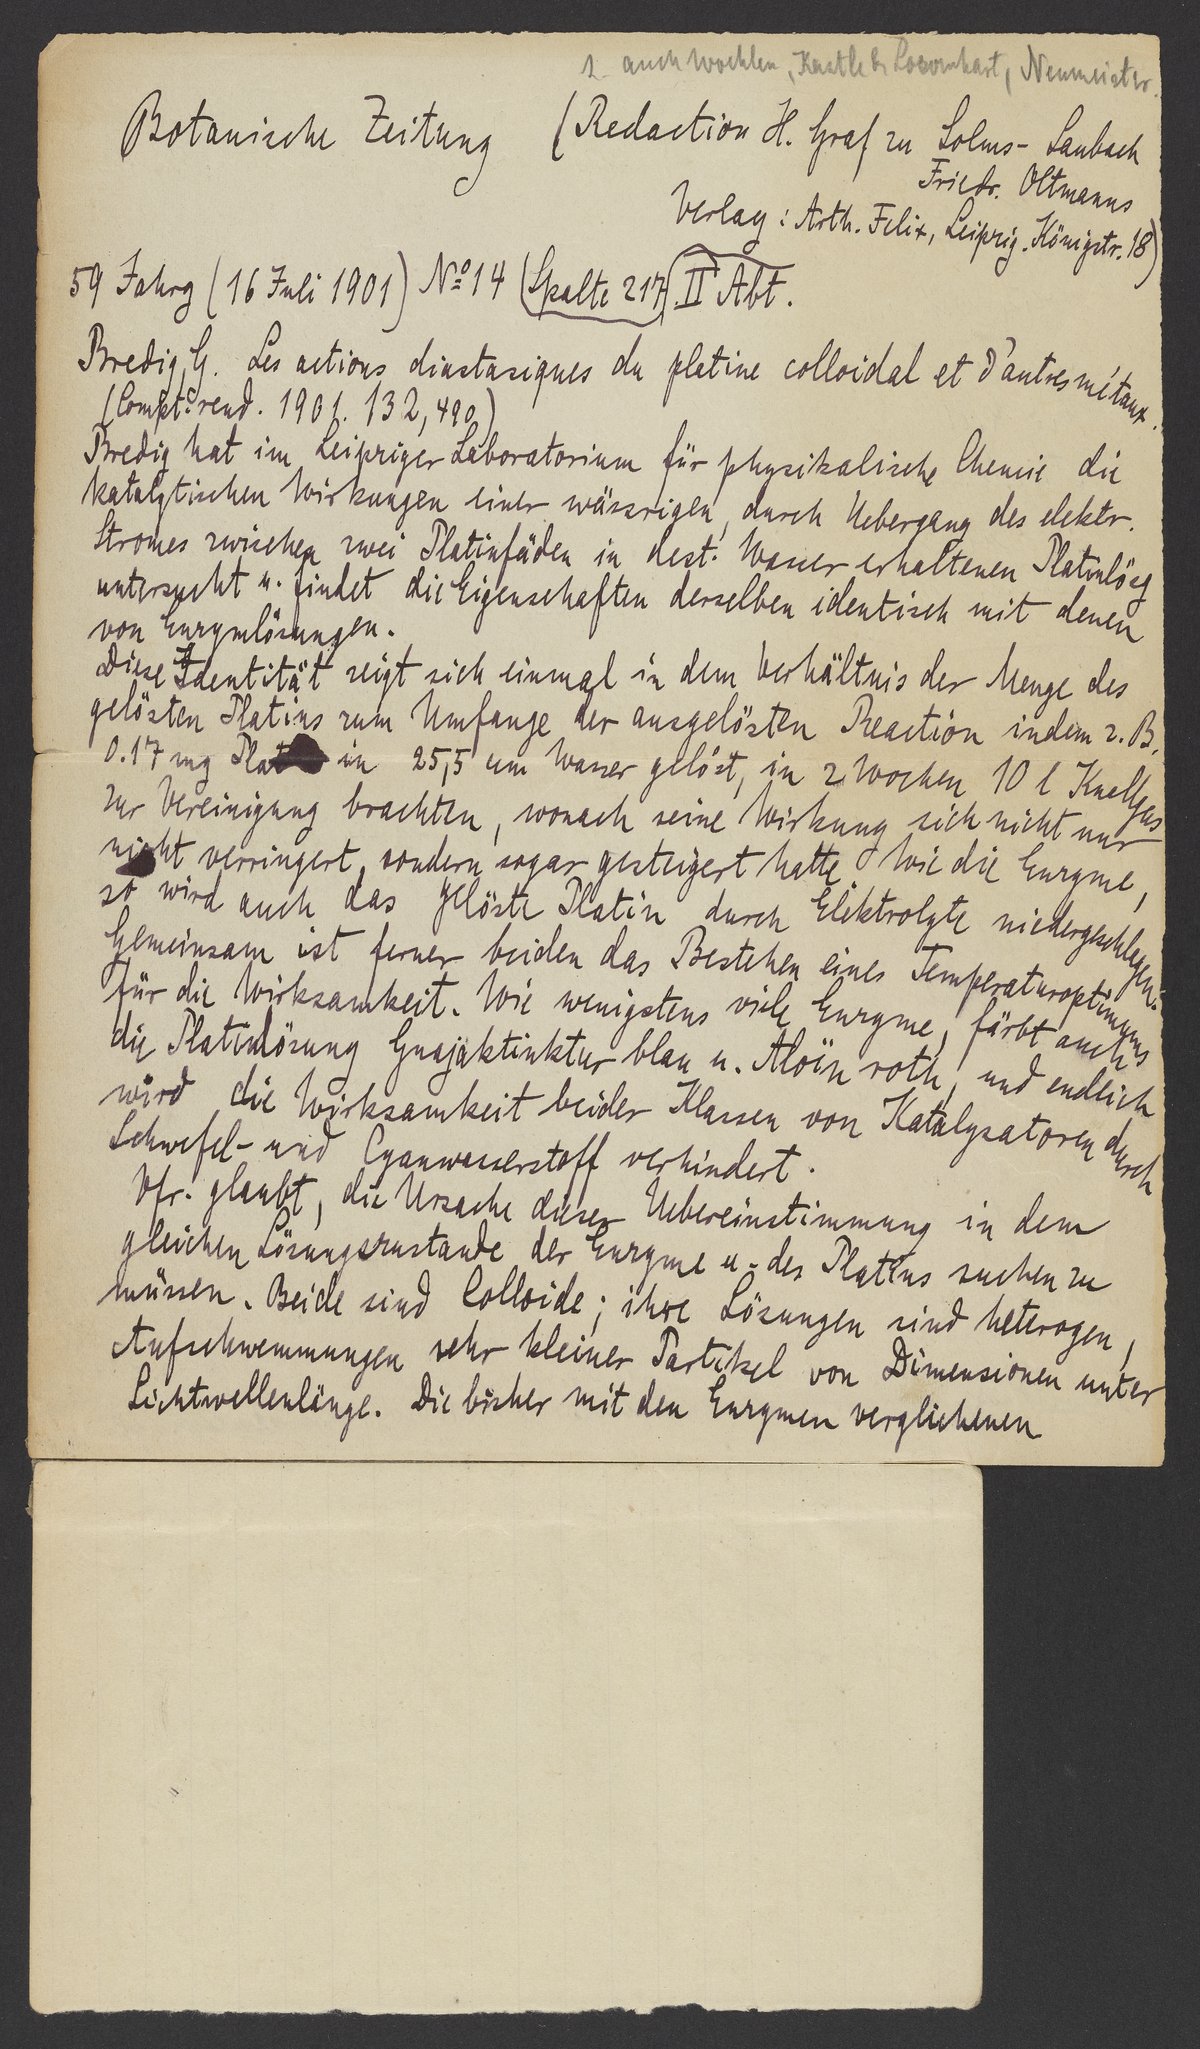 auch Kastle & Loevenhart, Neumeister.
Botanische Zeitung (Redaction H. Graf zu Solms-Laubach
Friedr. Oltmanns
Verlag: Arth. Felix, Leipzig. Königstr. 18)
59 Jahrg (16 Juli 1901) No 14 (Spalte 217) II Abt.
Bredig, G. Les actions diastasiques du platine colloidal et d'autres métaux.
(Compt. rend. 1901. 132, 490)
Bredig hat im Leipziger Laboratorium für physikalische Chemie die
katalytischen Wirkungen einer wässrigen, durch Uebergang des elektr.
Stromes zwischen zwei Platinfäden in dest. Wasser erhaltenen Platinlösg
untersucht u. findet die Eigenschaften derselben identisch mit denen
von Enzymlösungen.
Diese Identität zeigt sich einmal in dem Verhältnis der Menge des
gelösten Platins zum Umfange der ausgelösten Reaction indem z. B.
0.17 mg Plat in 25,5 ccm Wasser gelöst, in 2 Wochen 10 l Knallgas
zur Vereinigung brachten, wonach seine Wirkung sich nicht nur
nicht verringert, sondern sogar gesteigert hatte. Wie die Enzyme,
so wird auch das gelöste Platin durch Elektrolyte niedergeschlagen.
Gemeinsam ist ferner beiden das Bestehen eines Temperaturoptimums
für die Wirksamkeit. Wie wenigstens viele Enzyme, färbt auch
die Platinlösung Guajaktinktur blau u. Aloïn roth, und endlich
wird die Wirksamkeit beider Klassen von Katalysatoren durch
Schwefel- und Cyanwasserstoff verhindert.
Vfr. glaubt, die Ursache dieser Uebereinstimmung in dem
gleichen Lösungszustande der Enzyme u. des Platins suchen zu
müssen. Beide sind Colloide; ihre Lösungen sind heterogen,
Aufschwemmungen sehr kleiner Partikel von Dimensionen unter
Lichtwellenlänge. Die bisher mit den Enzymen verglichenen